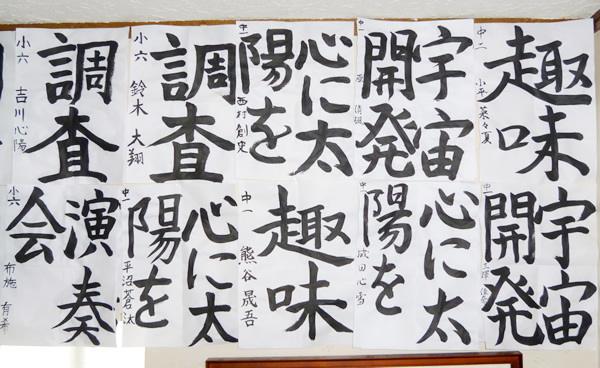 趣味
中二 小平 菜々夏
宇宙
開発
中一
心に太
陽を
中一 西村 創史
調査
小六 鈴木 大翔
調査
小六 吉川心陽
宇宙
開発
中一
心に太
陽を
中一 成田心雪
趣味
中一 熊谷晟吾
心に太
陽を
中一 平沼蒼汰
演奏
会
小六 布施 有希